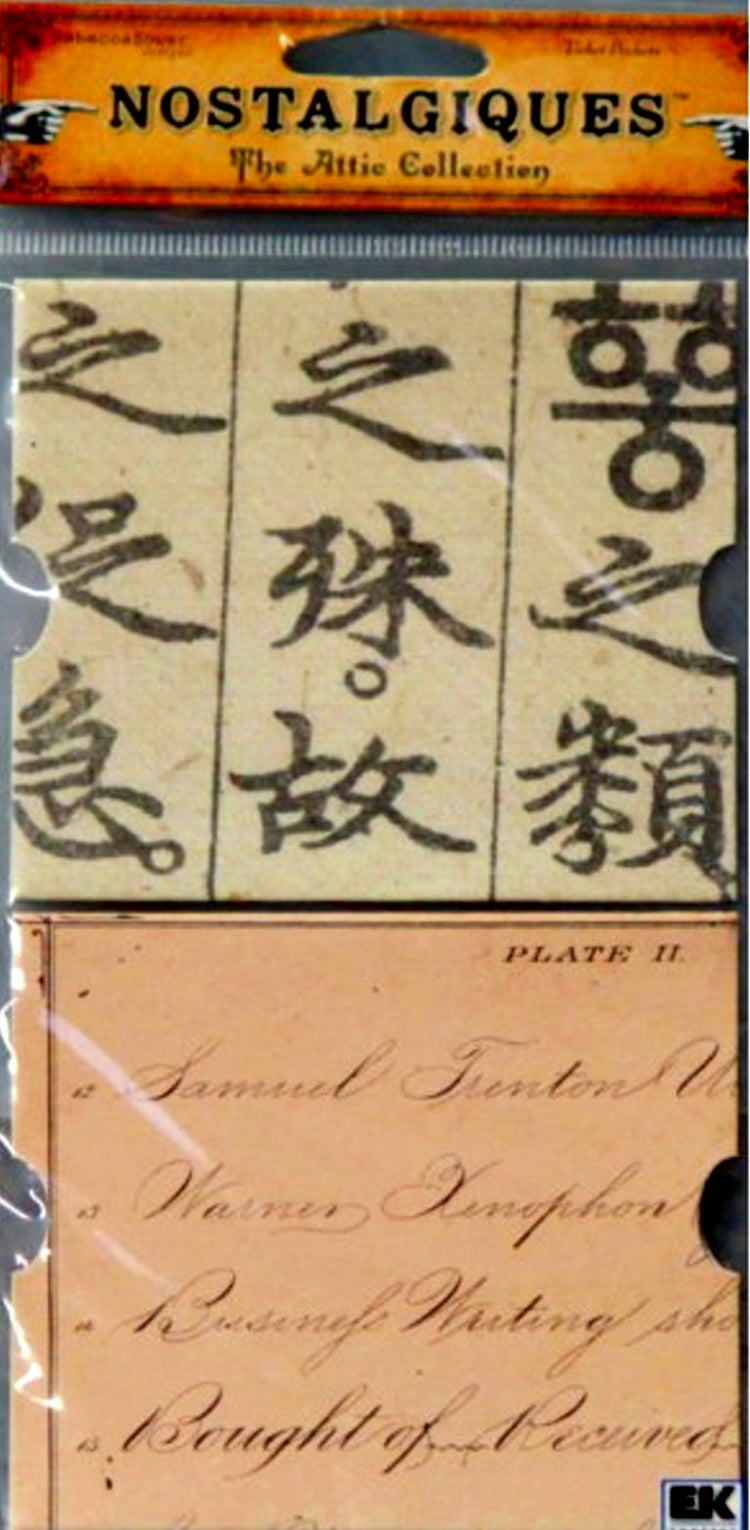 RebeccaSower
designs
Ticket Pockets
NOSTALGIQUES™
The Attic Collection
之類
之殊。故
之促急。
PLATE II.
Samuel Trenton
Warner Xenophon
Business Writing sho
Bought of Received
EK